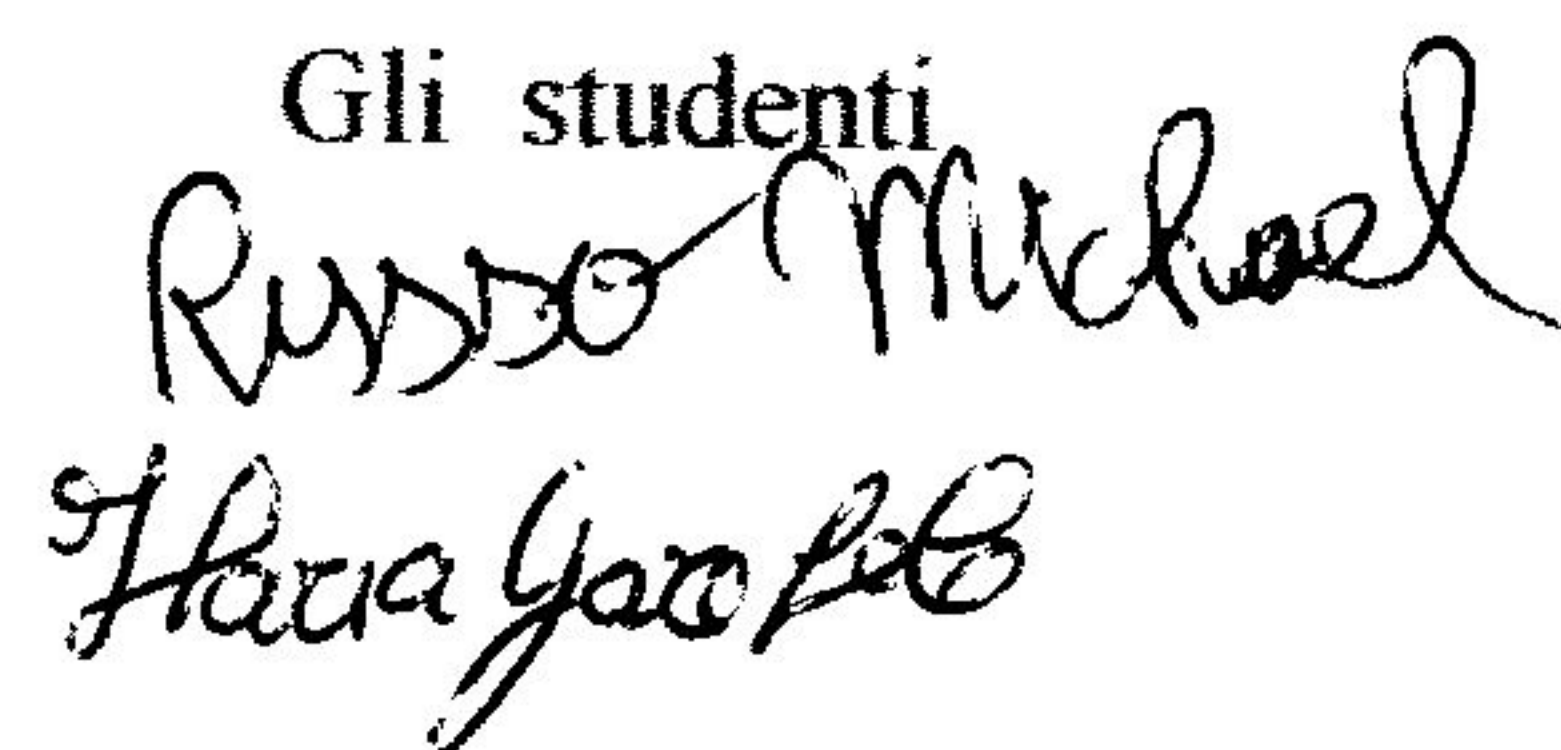 Gli studenti
Russo Michael
Ilaria Garofalo